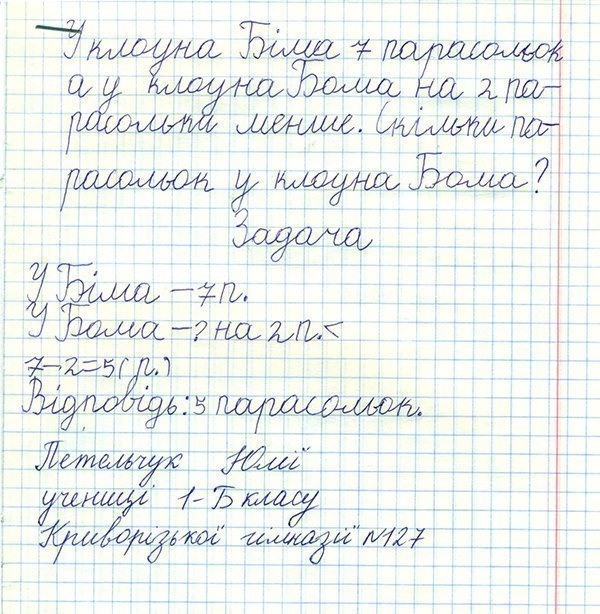 У клоуна Біма 7 парасольок
а у клоуна Бома на 2 па-
расольки менше. Скільки па-
расольок у клоуна Бома?
Задача
У Біма – 7 п.
У Бома – ? на 2 п. <
7–2=5(п.)
Відповідь: 5 парасольок.
Петельчук Юлії
учениці 1-Б класу
Криворізької гімназії №127